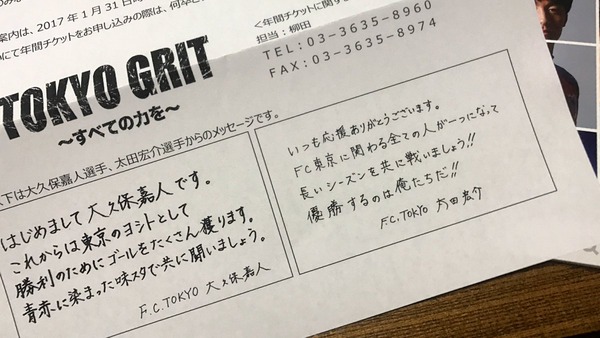 案内は、2017年1月31日
にて年間チケットをお申し込みの際は、何卒
<年間チケットに関する
担当:柳田
TEL:03-3635-8960
FAX:03-3635-8974
TOKYO GRIT
~すべての力を~
下は大久保嘉人選手、太田宏介選手からのメッセージです。
はじめまして大久保嘉人です。
これからは東京のヨシトとして
勝利のためにゴールをたくさん獲ります。
青赤に染まった味スタで共に闘いましょう。
F.C.TOKYO 大久保嘉人
いつも応援ありがとうございます。
FC東京に関わる全ての人が一つになって
長いシーズンを共に戦いましょう!!
優勝するのは俺たちだ!!
F.C.TOKYO 太田宏介